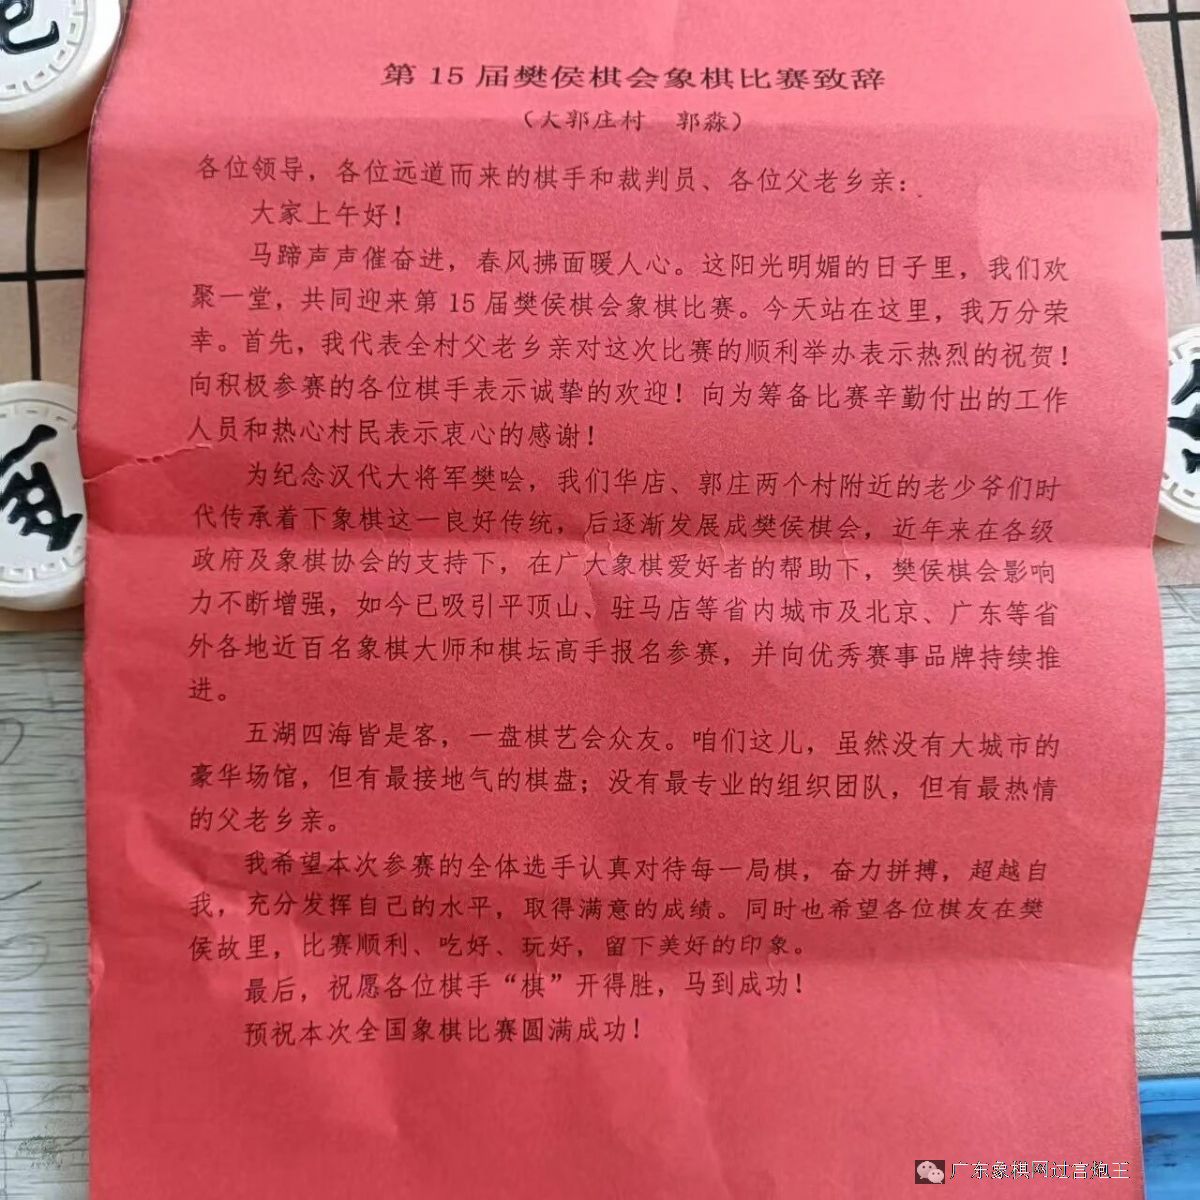 第15届樊侯棋会象棋比赛致辞
（大郭庄村 郭淼）
各位领导，各位远道而来的棋手和裁判员、各位父老乡亲：
大家上午好！
马蹄声声催奋进，春风拂面暖人心。这阳光明媚的日子里，我们欢
聚一堂，共同迎来第15届樊侯棋会象棋比赛。今天站在这里，我万分荣
幸。首先，我代表全村父老乡亲对这次比赛的顺利举办表示热烈的祝贺！
向积极参赛的各位棋手表示诚挚的欢迎！向为筹备比赛辛勤付出的工作
人员和热心村民表示衷心的感谢！
为纪念汉代大将军樊哙，我们华店、郭庄两个村附近的老少爷们时
代传承着下象棋这一良好传统，后逐渐发展成樊侯棋会，近年来在各级
政府及象棋协会的支持下，在广大象棋爱好者的帮助下，樊侯棋会影响
力不断增强，如今已吸引平顶山、驻马店等省内城市及北京、广东等省
外各地近百名象棋大师和棋坛高手报名参赛，并向优秀赛事品牌持续推
进。
五湖四海皆是客，一盘棋艺会众友。咱们这儿，虽然没有大城市的
豪华场馆，但有最接地气的棋盘；没有最专业的组织团队，但有最热情
的父老乡亲。
我希望本次参赛的全体选手认真对待每一局棋，奋力拼搏，超越自
我，充分发挥自己的水平，取得满意的成绩。同时也希望各位棋友在樊
侯故里，比赛顺利、吃好、玩好，留下美好的印象。
最后，祝愿各位棋手“棋”开得胜，马到成功！
预祝本次全国象棋比赛圆满成功！
广东象棋网过宫炮王